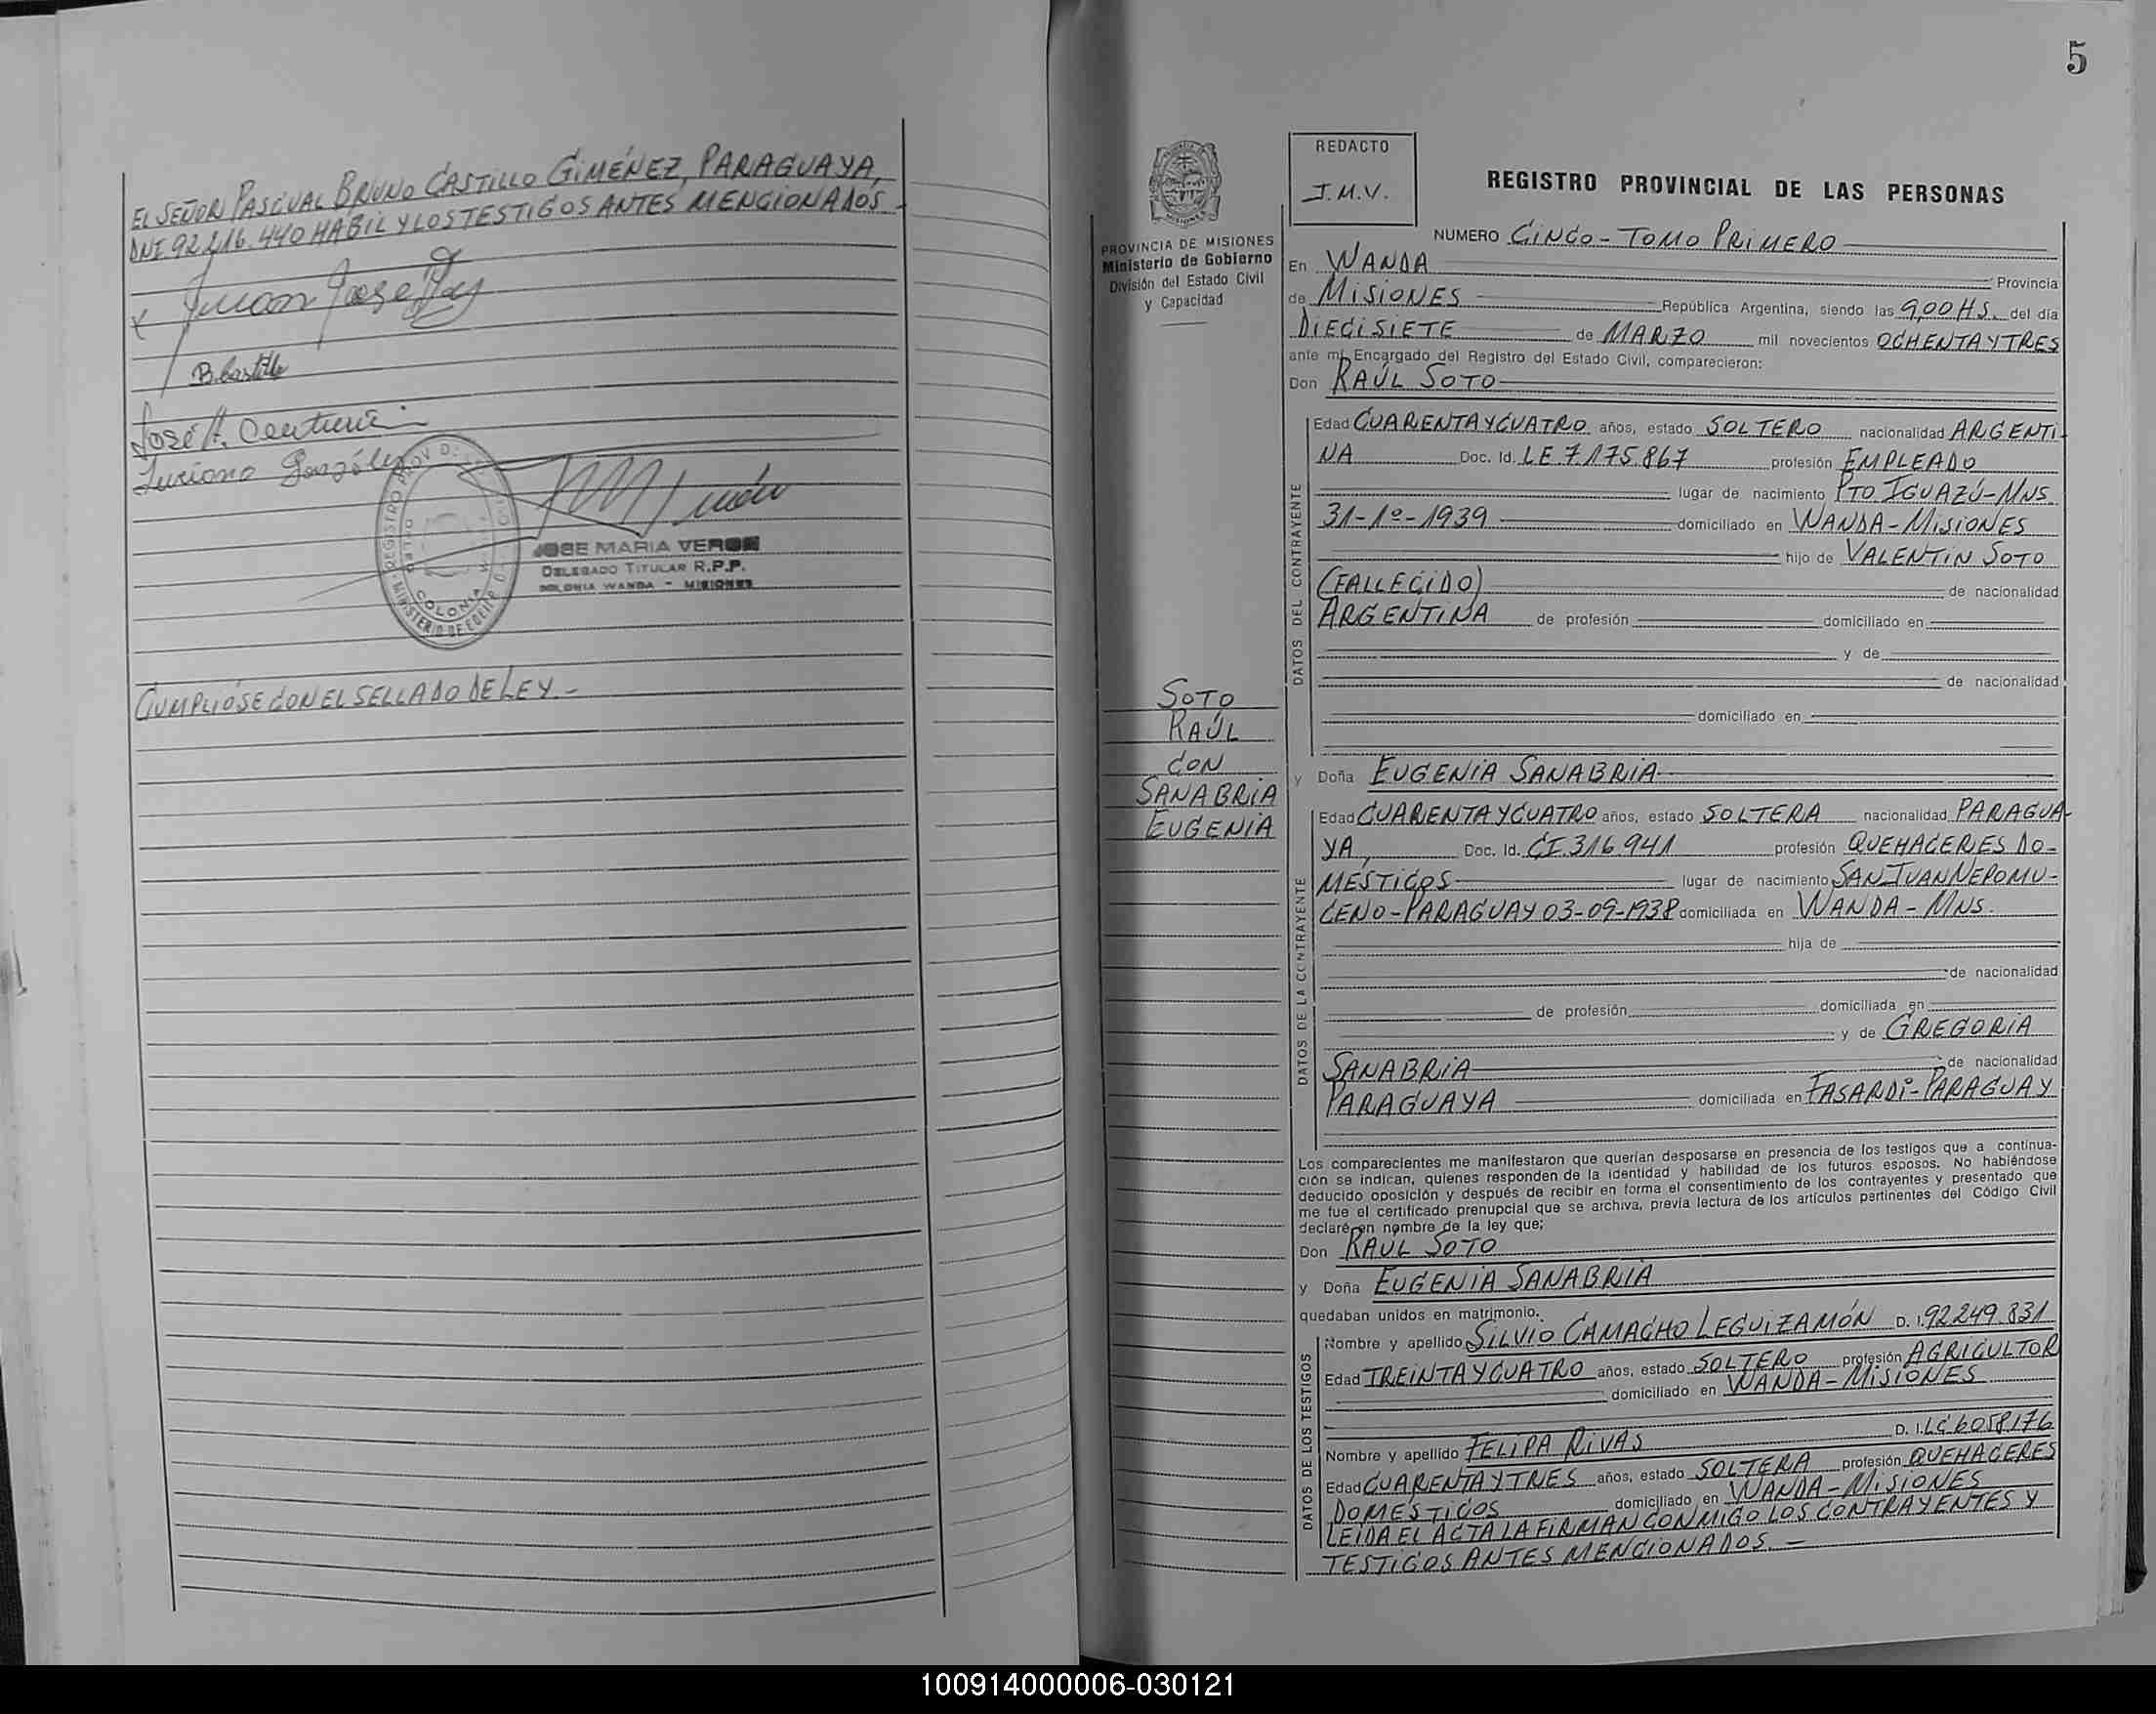 EL SEÑOR PASCUAL BRUNO CASTILLO GIMÉNEZ, PARAGUAYA,
DNI 92.216.440 HÁBIL Y LOS TESTIGOS ANTES MENCIONADOS.
x Juan José
B. Castillo
José A. Centurión
Luciano González
REGISTRO PROV D
COLONIA
JOSE MARIA VERON
DELEGADO TITULAR R.P.P.
COLONIA WANDA - MISIONES
CUMPLIÓSE CON EL SELLADO DE LEY.-
5
PROVINCIA DE MISIONES
Ministerio de Gobierno
División del Estado Civil
y Capacidad
SOTO
RAÚL
CON
SANABRIA
EUGENIA
REDACTO
J.M.V.
REGISTRO PROVINCIAL DE LAS PERSONAS
NUMERO CINCO - TOMO PRIMERO
En WANDA Provincia
de MISIONES República Argentina, siendo las 9,00 HS. del día
DIECISIETE de MARZO mil novecientos OCHENTA Y TRES
ante mí, Encargado del Registro del Estado Civil, comparecieron:
Don RAÚL SOTO
DATOS DEL CONTRAYENTE
Edad CUARENTA Y CUATRO años, estado SOLTERO nacionalidad ARGENTI-
NA Doc. Id. LE.7.175.867 profesión EMPLEADO
lugar de nacimiento PTO. IGUAZÚ-MNS.
31-1º-1939 domiciliado en WANDA-MISIONES
hijo de VALENTIN SOTO
(FALLECIDO) de nacionalidad
ARGENTINA de profesión domiciliado en
y de
de nacionalidad
domiciliado en
y Doña EUGENIA SANABRIA
DATOS DE LA CONTRAYENTE
Edad CUARENTA Y CUATRO años, estado SOLTERA nacionalidad PARAGUA-
YA, Doc. Id. CI.316.941 profesión QUEHACERES DO-
MESTICOS lugar de nacimiento SAN JUAN NEPOMU-
CENO-PARAGUAY 03-09-1938 domiciliada en WANDA-MNS.
hija de
de nacionalidad
de profesión domiciliada en
y de GREGORIA
SANABRIA de nacionalidad
PARAGUAYA domiciliada en FASARDI-PARAGUAY
Los comparecientes me manifestaron que querían desposarse en presencia de los testigos que a continua-
ción se indican, quienes responden de la identidad y habilidad de los futuros esposos. No habiéndose
deducido oposición y después de recibir en forma el consentimiento de los contrayentes y presentado que
me fue el certificado prenupcial que se archiva, previa lectura de los artículos pertinentes del Código Civil
declaré en nombre de la ley que;
Don RAÚL SOTO
y Doña EUGENIA SANABRIA
quedaban unidos en matrimonio.
DATOS DE LOS TESTIGOS
Nombre y apellido SILVIO CAMACHO LEGUIZAMÓN D. I. 92.249.831
Edad TREINTA Y CUATRO años, estado SOLTERO profesión AGRICULTOR
domiciliado en WANDA-MISIONES
Nombre y apellido FELIPA RIVAS D. I. LC 6058176
Edad CUARENTA Y TRES años, estado SOLTERA profesión QUEHACERES
DOMÉSTICOS domiciliado en WANDA-MISIONES
LEIDA EL ACTA LA FIRMAN CONMIGO LOS CONTRAYENTES Y
TESTIGOS ANTES MENCIONADOS.-
100914000006-030121